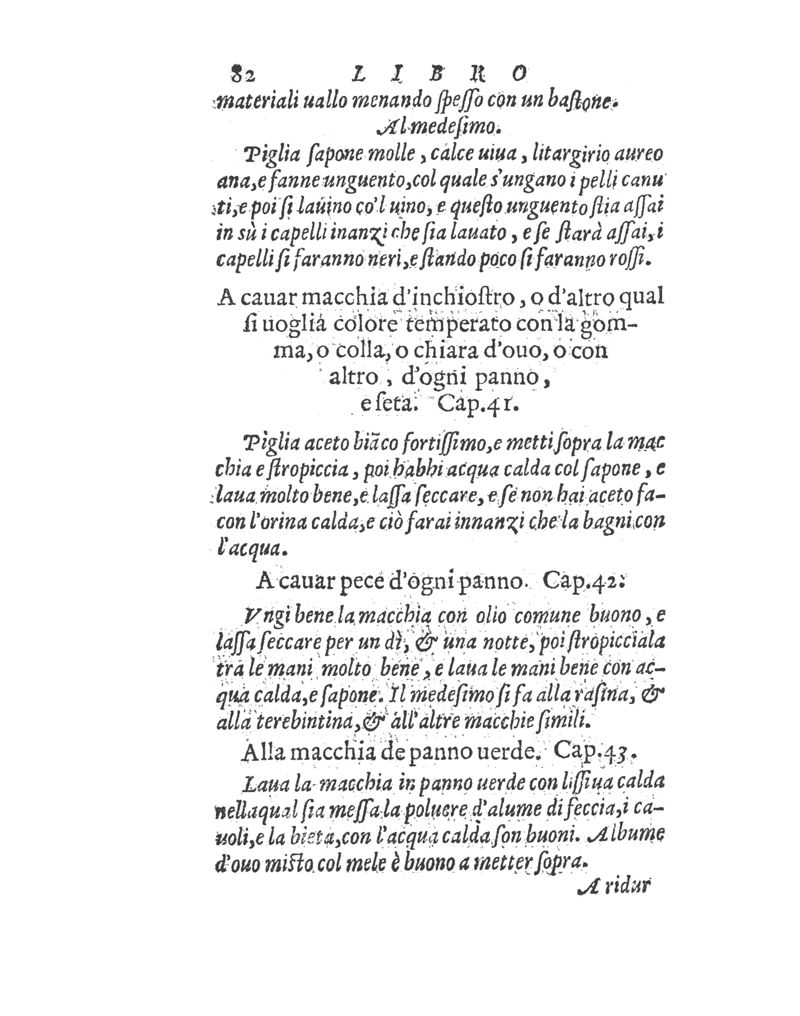 82 L I B R O
materiali uallo menando ſpeſſo con un baſtone.
Al medeſimo.
Piglia ſapone molle, calce uiua, litargirio aureo
ana, e fanne unguento, col quale s'ungano i pelli canu
ti, e poi ſi lauino co'l uino, e queſto unguento ſtia aſſai
in sù i capelli inanzi che ſia lauato, e ſe ſtarà aſſai, i
capelli ſi faranno neri, e ſtando poco ſi faranno roſſi.
A cauar macchia d'inchioſtro, o d'altro qual
ſi uoglia colore temperato con la gom-
ma, o colla, o chiara d'ouo, o con
altro, d'ogni panno,
e ſeta. Cap.41.
Piglia aceto biãco fortiſſimo, e metti ſopra la mac
chia e ſtropiccia, poi habbi acqua calda col ſapone, e
laua molto bene, e laſſa ſeccare, e ſe non hai aceto fa-
con l'orina calda, e ciò farai innanzi che la bagni con
l'acqua.
A cauar pece d'ogni panno. Cap.42.
Vngi bene la macchia con olio comune buono, e
laſſa ſeccare per un dì, & una notte, poi ſtropicciala
trà le mani molto bene, e laua le mani bene con ac-
qua calda, e ſapone. Il medeſimo ſi fa alla raſina, &
alla terebintina, & all'altre macchie ſimili.
Alla macchia de panno uerde. Cap.43.
Laua la macchia in panno uerde con liſſiua calda
nella qual ſia meſſa la poluere d'alume di feccia, i ca-
uoli, e la bieta, con l'acqua calda ſon buoni. Albume
d'ouo miſto col mele è buono a metter ſopra.
A ridur